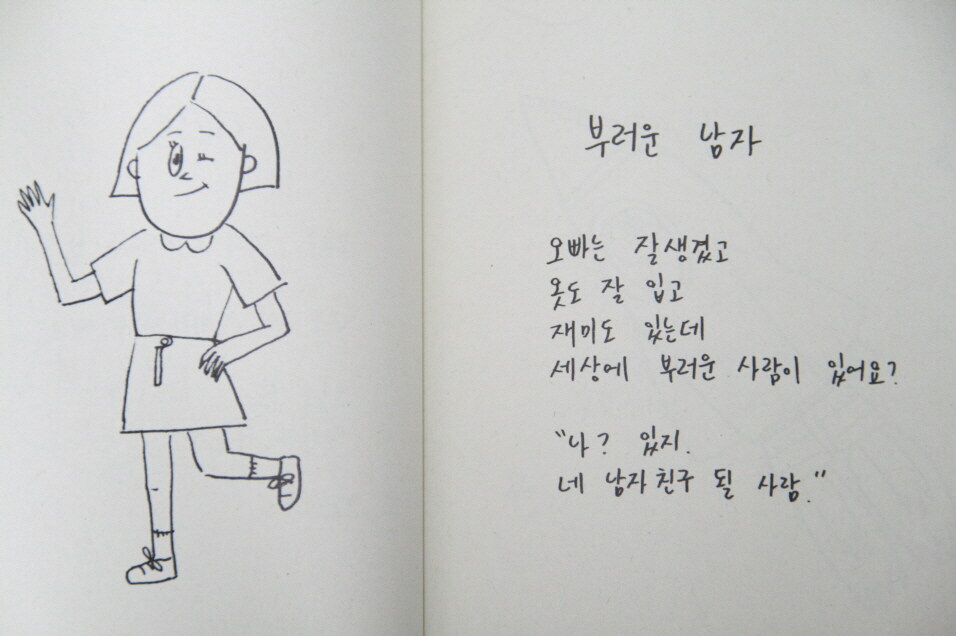 부러운 남자
오빠는 잘생겼고
옷도 잘 입고
재미도 있는데
세상에 부러운 사람이 있어요?
"나? 있지.
네 남자친구 될 사람."